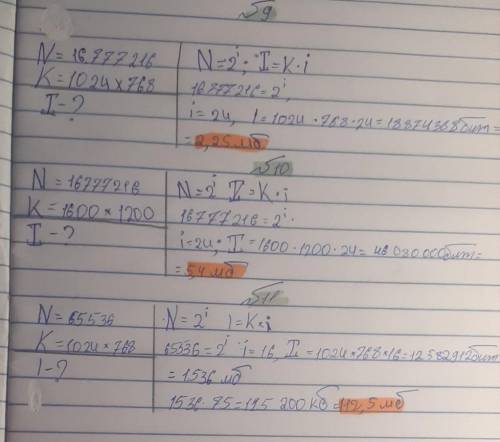 №9
N=16777216
K=1024×768
I-?
N=2^i; I=K·i
16777216=2^i,
i=24, I=1024·768·24=18874368бит=
=2,25мб
№10
N=16777216
K=1600×1200
I-?
N=2^i I=K·i
16777216=2^i.
i=24; I=1600·1200·24=46080000бит=
=5,4мб
№11
N=65536
K=1024×768
I-?
N=2^i I=K×i
65536=2^i i=16, I=1024×768×16=12582912бит
=1536мб
1536·75=115200кб=112,5мб